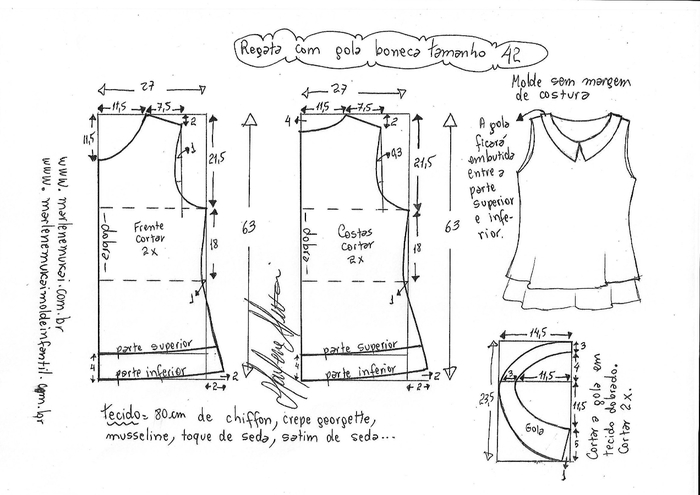 Regata com gola boneca tamanho 42
27
11,5
7,5
11,5
2
1
21,5
Frente
cortar
2x
dobra
18
63
1
parte superior
parte inferior
4
2
2
27
11,5
7,5
4
2
0,3
21,5
Costas
cortar
2x
dobra
18
63
1
parte superior
parte inferior
4
2
2
Molde sem margem
de costura
A gola
ficará
embutida
entre a
parte
superior
e infe-
rior.
14,5
3
4
3
11,5
11,5
23,5
Gola
5
1
Cortar a gola em
tecido dobrado.
Cortar 2x.
www.marlenemukai.com.br
www.marlenemukaimoldeinfantil.com.br
Marlene Mukai
tecido= 80cm de chiffon, crepe georgette,
musseline, toque de seda, satim de seda...